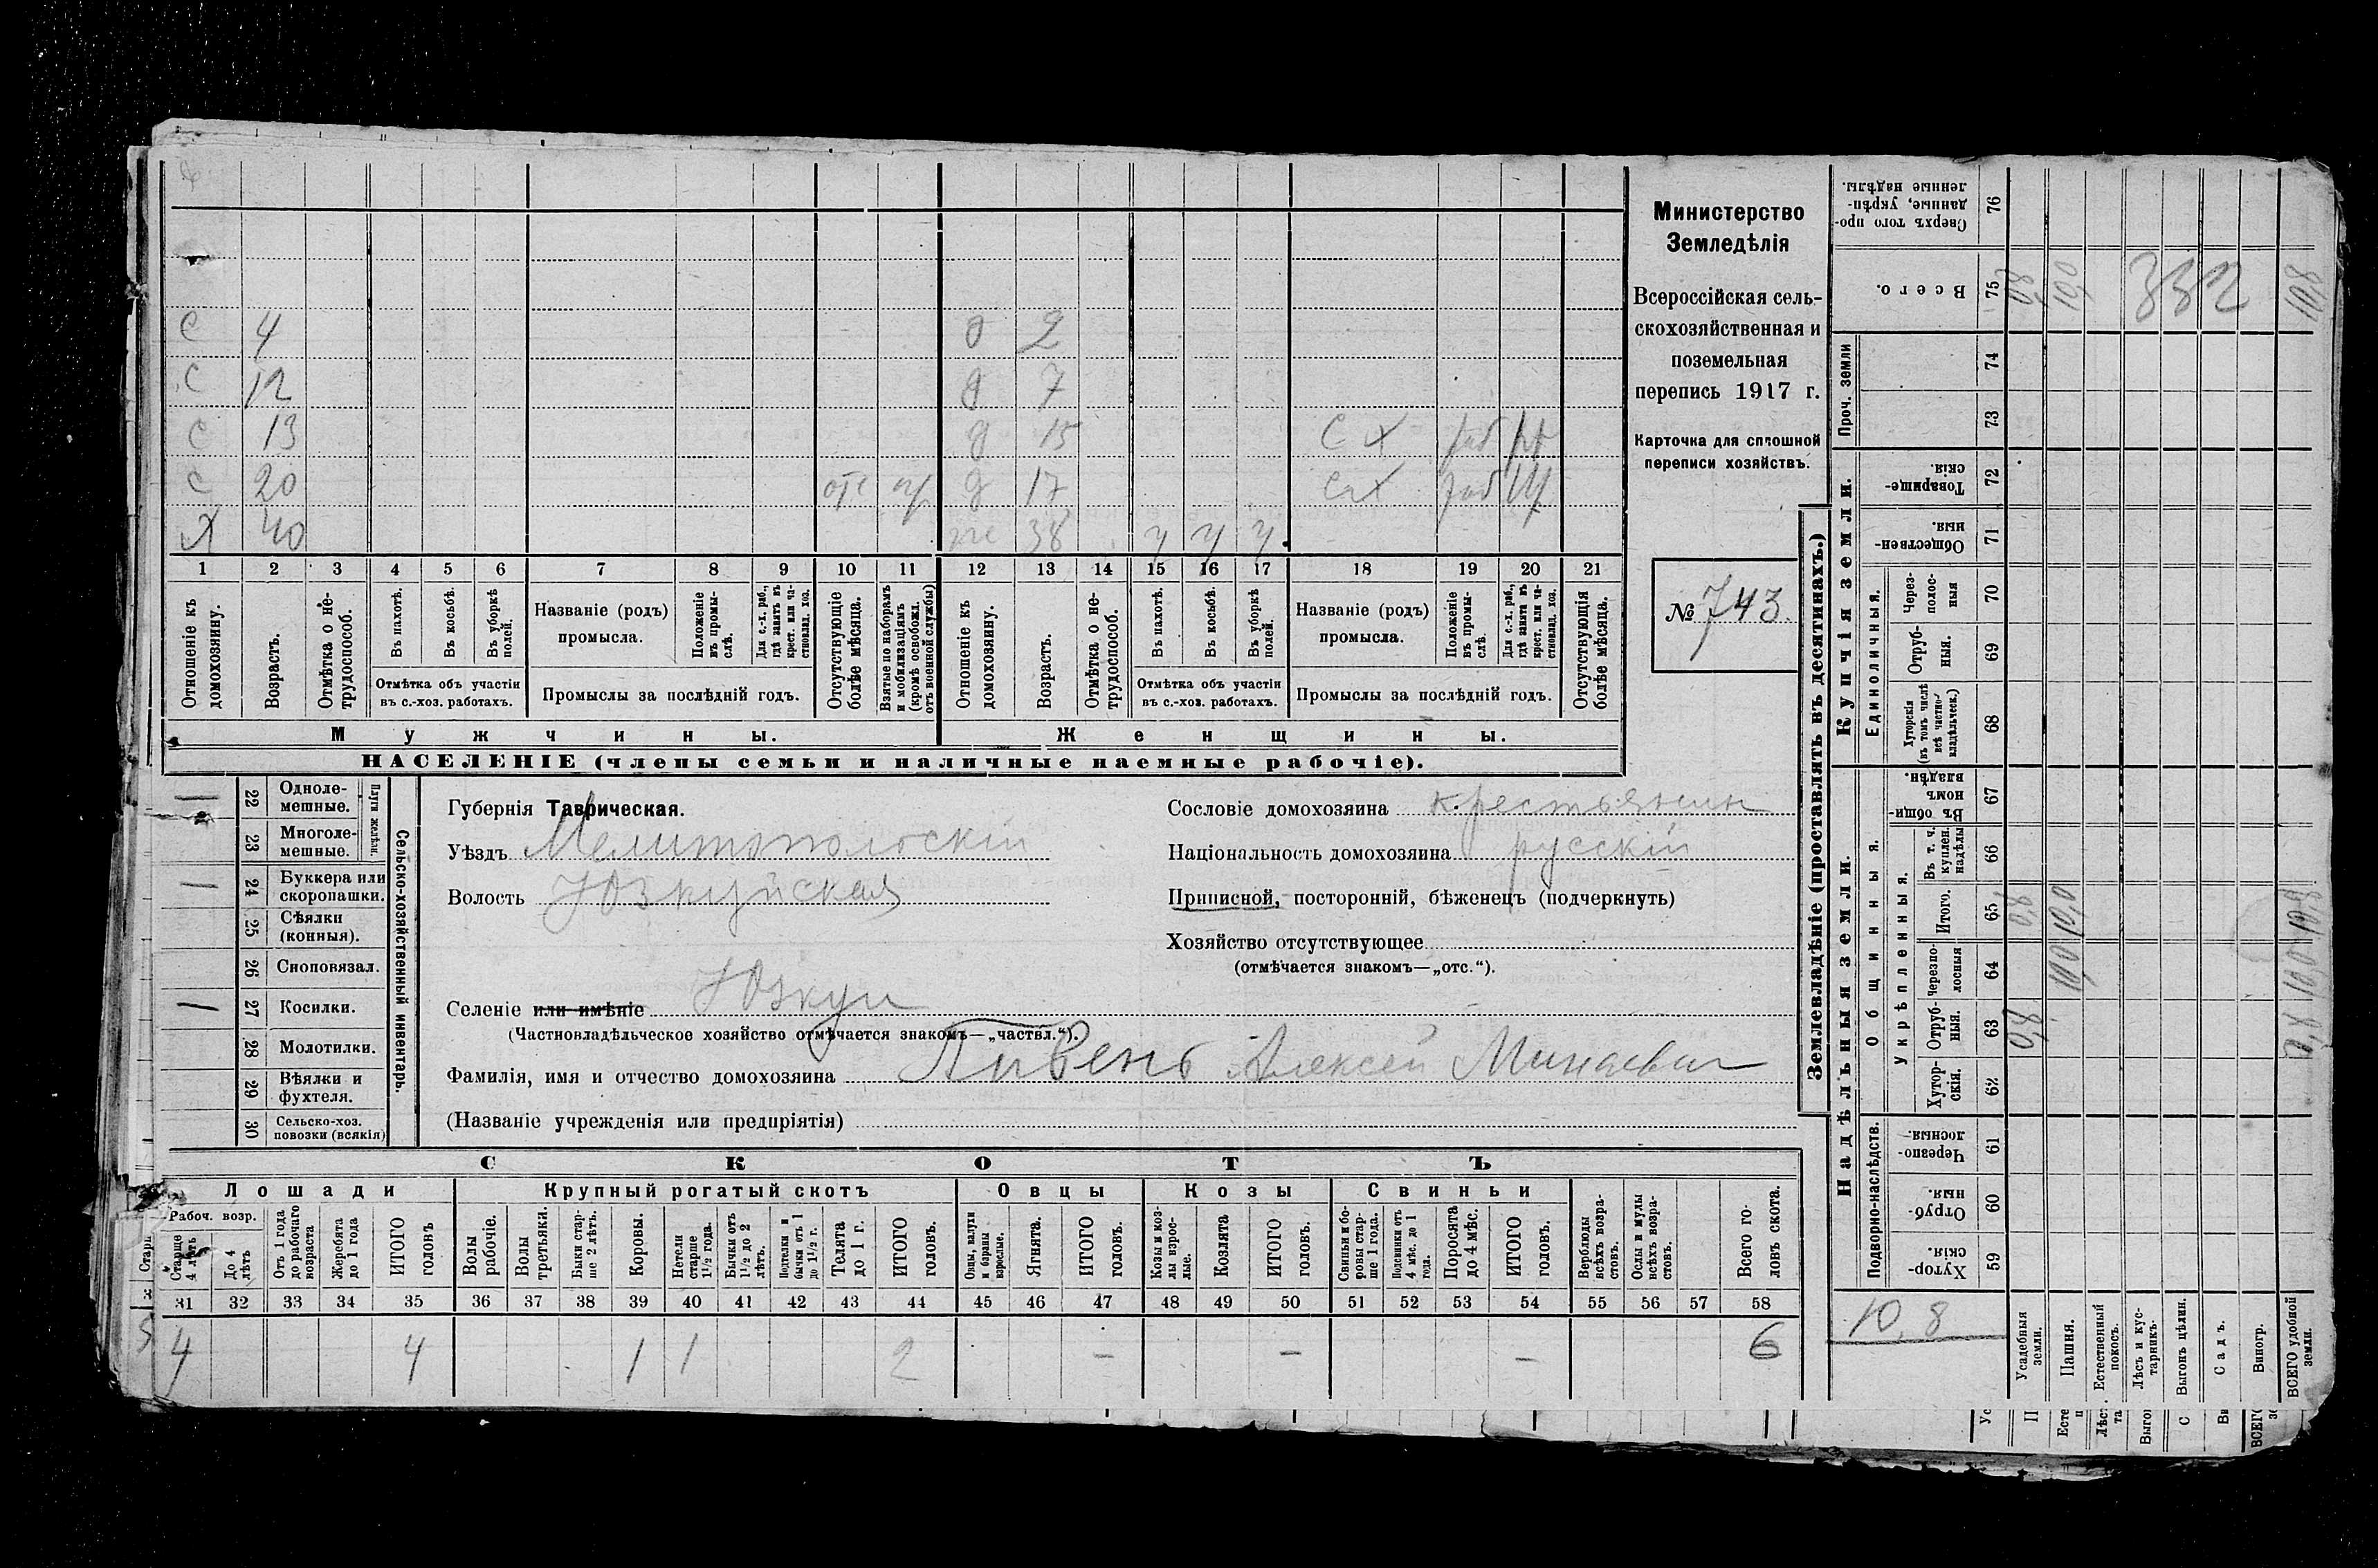 С 4 д 2
С 12 д 7
С 13 д 15 С Х раб
С 20 отс д 17 СХ раб
Х 40 же 38 у у у
1 2 3 4 5 6 7 8 9 10 11 12 13 14 15 16 17 18 19 20 21
Отношеніе къ домохозяину.
Возрастъ.
Отмѣтка о не-
трудоспособ.
Въ пахотѣ.
Въ косьбѣ.
Въ уборкѣ
полей.
Отмѣтка объ участіи
въ с.-хоз. работахъ.
Названіе (родъ)
промысла.
Положеніе
въ промы-
слѣ.
Для с.-х. раб.,
гдѣ занятъ въ
крест. или ча-
стновлад. хоз.
Промыслы за послѣдній годъ.
Отсутствующіе
болѣе мѣсяца.
Взятые по наборамъ
и мобилизаціямъ
(кромѣ освобожд.
отъ военной службы)
Отношеніе къ
домохозяину.
Возрастъ.
Отмѣтка о не-
трудоспособ.
Въ пахотѣ.
Въ косьбѣ.
Въ уборкѣ
полей.
Отмѣтка объ участіи
въ с.-хоз. работахъ.
Названіе (родъ)
промысла.
Положеніе
въ промы-
слѣ.
Для с.-х. раб.,
гдѣ занята въ
крест. или ча-
стновлад. хоз.
Промыслы за послѣдній годъ.
Отсутствующія
болѣе мѣсяца.
Мужчины. Женщины.
НАСЕЛЕНІЕ (члены семьи и наличные наемные рабочіе).
Министерство
Земледѣлія
Всероссійская сель-
скохозяйственная и
поземельная
перепись 1917 г.
Карточка для сплошной
переписи хозяйствъ.
№ 743.
22 Одноле-
мешные.
23 Многоле-
мешные.
Плуги желѣзн.
24 Буккера или
скоропашки.
25 Сѣялки
(конныя).
26 Сноповязал.
27 Косилки.
28 Молотилки.
29 Вѣялки и
фухтеля.
30 Сельско-хоз.
повозки (всякія)
Сельско-хозяйственный инвентарь.
Губернія Таврическая.
Уѣздъ Мелитопольскій
Волость Юзкуйская
Селеніе или имѣніе Юзкуи
(Частновладѣльческое хозяйство отмѣчается знакомъ—„частвл.“).
Фамилія, имя и отчество домохозяина Пивень Алексей Минаевич
(Названіе учрежденія или предпріятія)
Сословіе домохозяина крестьянин
Національность домохозяина русскій
Приписной, посторонній, бѣженецъ (подчеркнуть)
Хозяйство отсутствующее
(отмѣчается знакомъ—„отс.“).
СКОТЪ
Лошади Крупный рогатый скотъ Овцы Козы Свиньи
Рабоч. возр.
Старше
4 лѣтъ
До 4
лѣтъ
Отъ 1 года
до рабочаго
возраста
Жеребята
до 1 года
ИТОГО
головъ
Волы
рабочіе.
Волы
третьяки.
Быки стар-
ше 2 лѣтъ.
Коровы.
Нетели
старше
1½ года.
Бычки отъ
1½ до 2
лѣтъ.
Подтелки и
бычки отъ 1
до 1½ г.
Телята
до 1 г.
ИТОГО
головъ.
Овцы, валухи
и бараны
взрослые.
Ягнята.
ИТОГО
головъ.
Козы и коз-
лы взрос-
лые.
Козлята
ИТОГО
головъ.
Свиньи и бо-
ровы стар-
ше 1 года.
Подсвинки отъ
4 мѣс. до 1
года.
Поросята
до 4 мѣс.
ИТОГО
головъ.
Верблюды
всѣхъ возра-
стовъ.
Ослы и мулы
всѣхъ возра-
стовъ.
Всего го-
ловъ скота.
31 32 33 34 35 36 37 38 39 40 41 42 43 44 45 46 47 48 49 50 51 52 53 54 55 56 57 58
4 4 1 1 2 – – – 6
Землевладѣніе (проставлять въ десятинахъ.)
Купчія земли.
Надѣльныя земли.
Сверхъ того про-
данные, укрѣп-
ленные надѣлы.
76
Всего. 75 0,8 10,0 332 10,8
Проч. земли 74
73
Товарище-
скія. 72
Обществен-
ныя. 71
Единоличныя.
Через-
полос-
ныя 70
Отруб-
ныя. 69
Хуторскія
(въ томъ числѣ
всѣ частно-
владѣльческ.) 68
Общинныя.
Въ общин-
номъ
владѣн. 67
Укрѣпленныя.
Въ т. ч.
куплен.
надѣлы 66
Итого. 65 0,8 10,0 10,8
Черезпо-
лосныя 64 10,0 10,0
Отруб-
ныя. 63 0,8 0,8
Хутор-
скія. 62
Подворно-наслѣдств.
Черезпо-
лосныя. 61
Отруб-
ныя. 60
Хутор-
скія. 59
10,8
Усадебныя
земли.
Пашня.
Естественный
покосъ.
Лѣсъ и кус-
тарникъ.
Выгонъ цѣлин.
Садъ.
Виногр.
ВСЕГО удобной
земли.